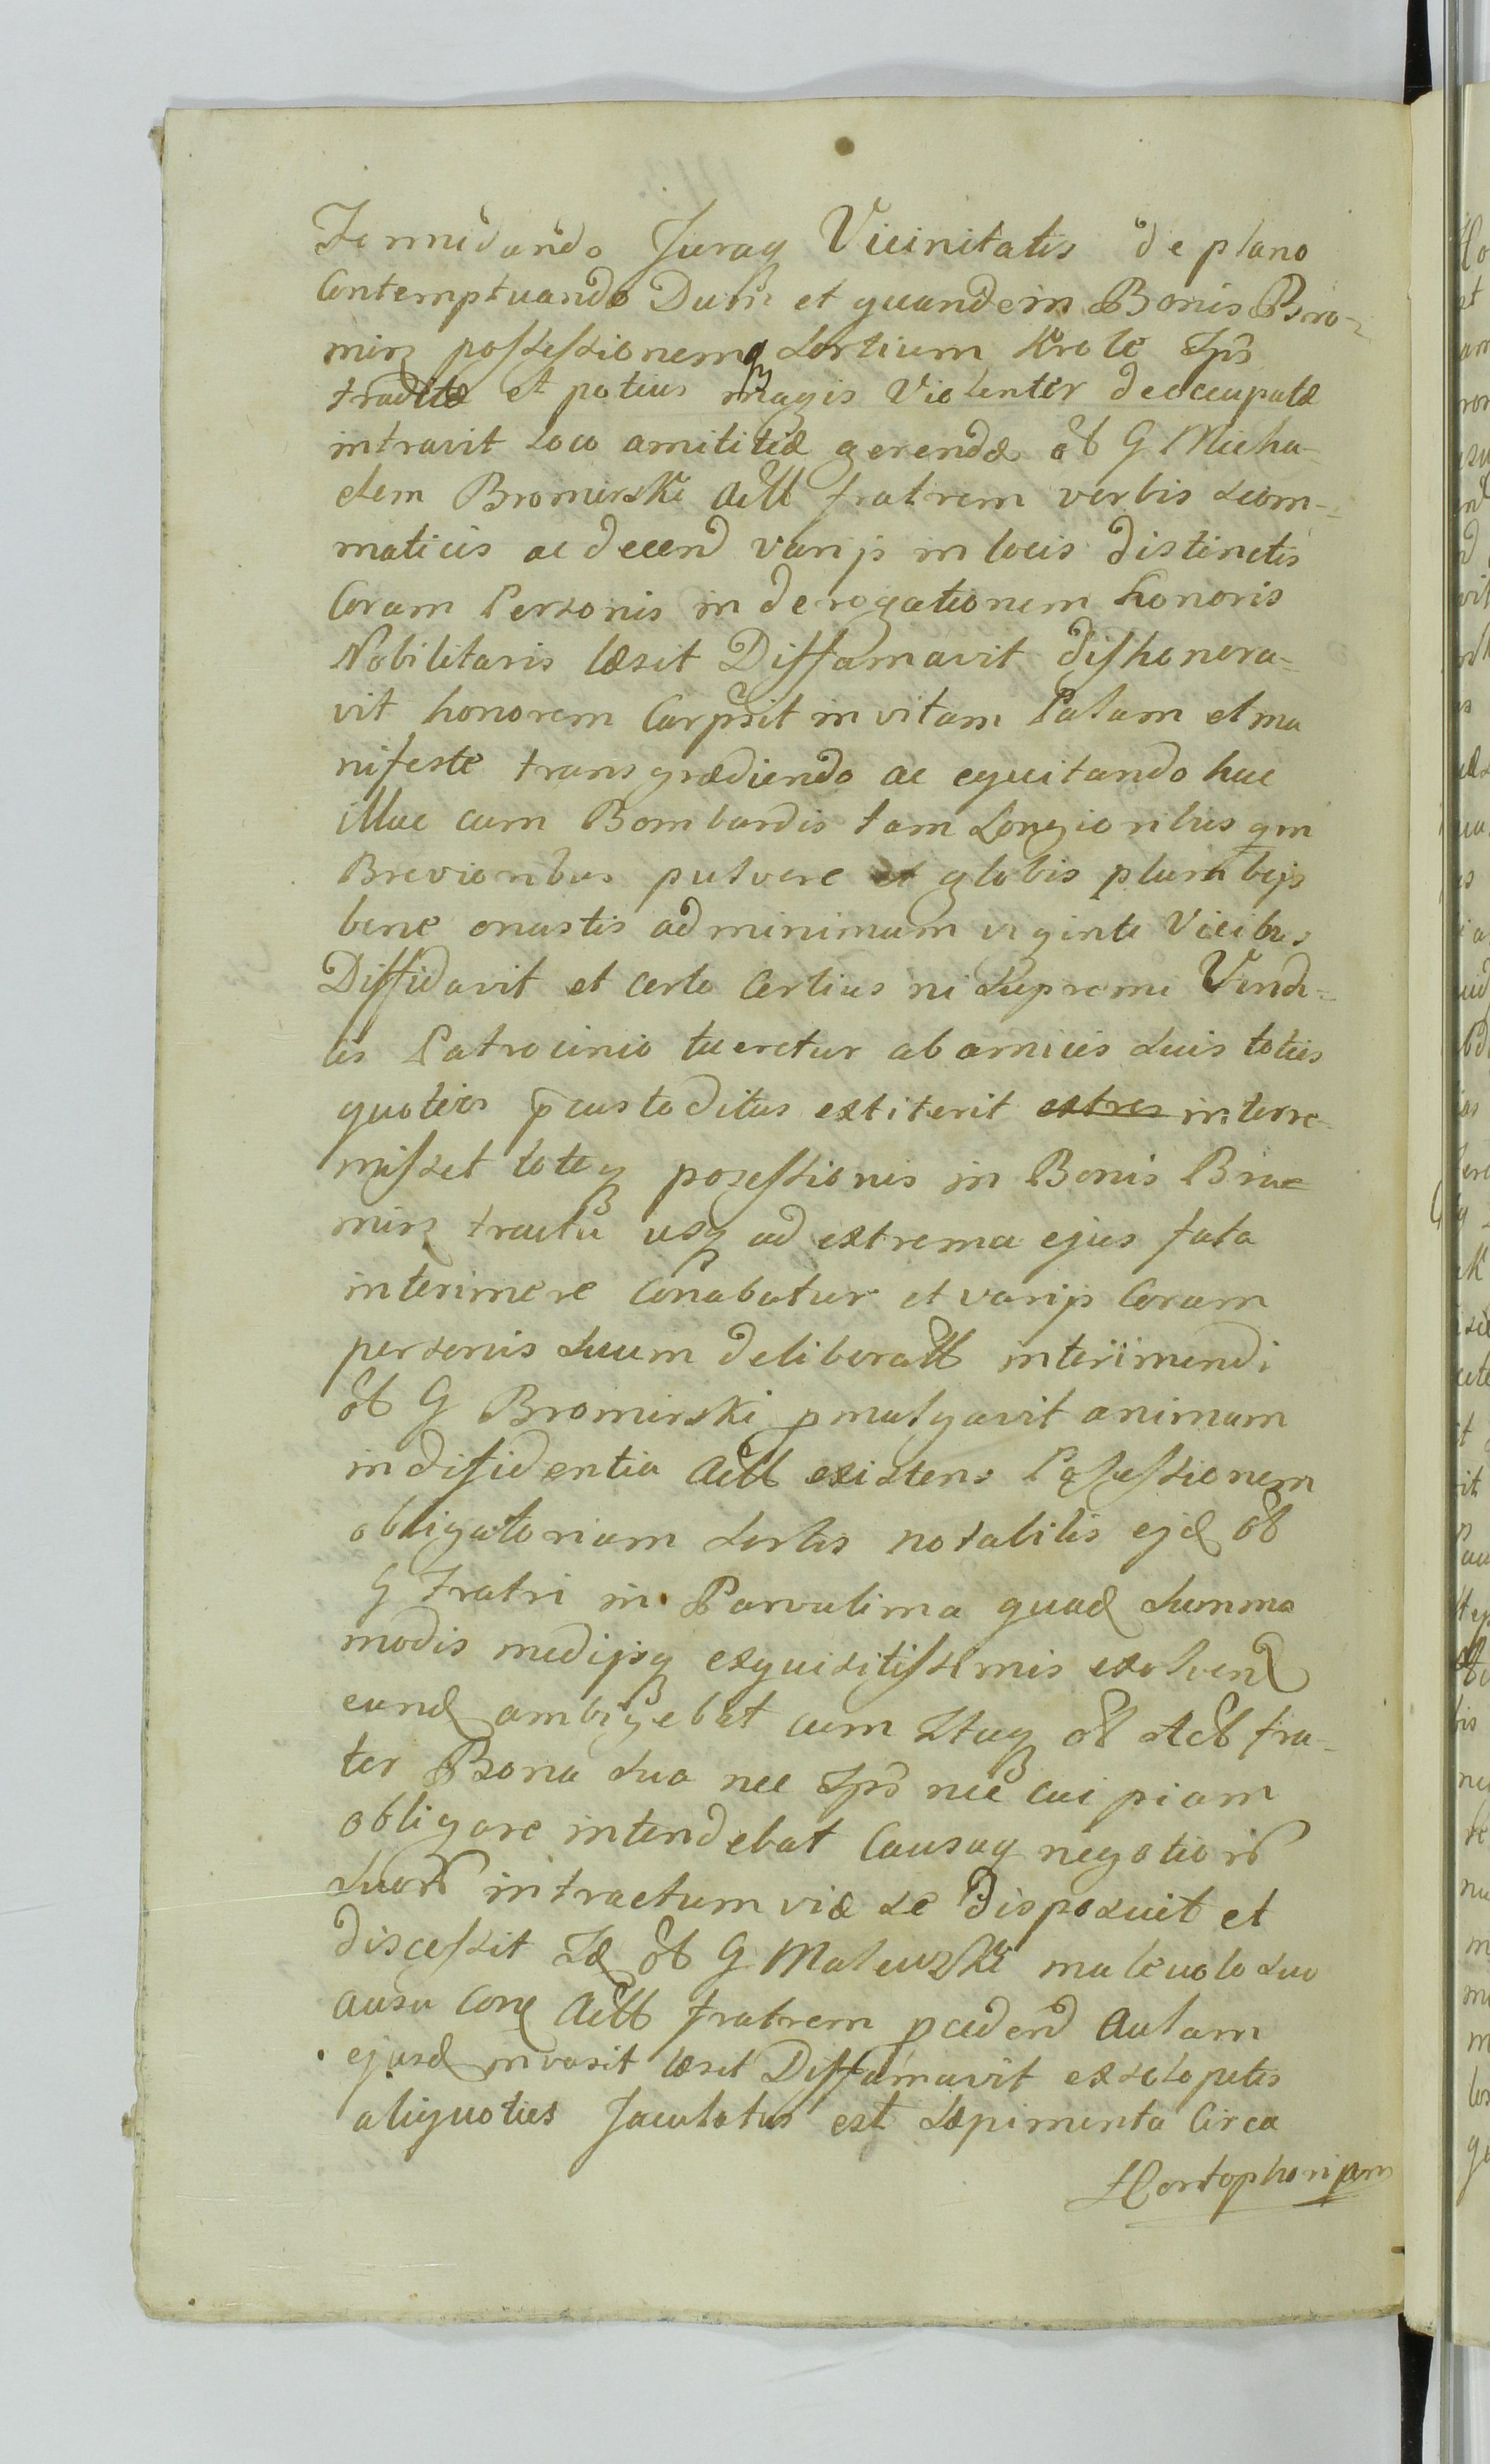 Juraq Vicinitatis de plano
Contemptuando Dum et quandem Bonis Bro-
mirz possessionemq sortium Krole Ips
traditæ et potius magis Violenter deoccupatæ
intravit loco amititiæ gerendæ ob G Micha-
elem Bromirski Actt fratrem verbis scom-
maticis ac decend varijs in locis distinctis
Coram Personis in derogationem honoris
Nobilitaris læsit Diffamavit dishonora-
vit honorem Carpsit invitam Palam et ma
nifeste transgrædiendo ac equitando huc
illuc cum Bombardis tam Longioribus qm
Brevioribus pulvere et globis plumbejs
bene onustis ad minimum viginti Vicibus
Diffidavit et certo Certius ni Supremi Vindi-
is Patrocinio tueretur ab amicis suis toties
quoties p custoditus extiterit extres interre
misset toteq posessionis in Bonis Bro
mirz tractu usq ad extrema ejus fata
interimere Conabatur et varijs Coram
personis suum deliberatt interimendi
ob G Bromirski pmulgavit animum
indifidentia Actt existens Possessionem
obligatoriam sortis notabilis ejd ob
G Fratri in Parvulima quad summa
modis medijsq exquisitissimis exolvend
eund ambigebat cum Itaq ob Actt fra-
ter Bona sua nec Ips nec cuipiam
obligare intendebat Causaq negotior
suor intractum viæ se disposuit et
discessit Id ob G Malewski malevolo suo
ausu Actt fratrem pcedend Aulam
ejusd invasit læsit Diffamavit exsclopetis
aliquoties Jaculatus est sæpimenta Circa